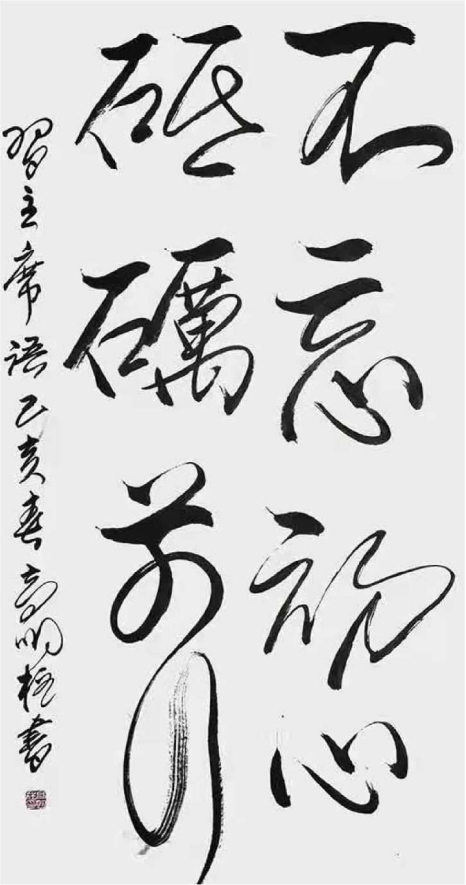 不忘初心
砥礪前行
習主席語己亥春高明柱書